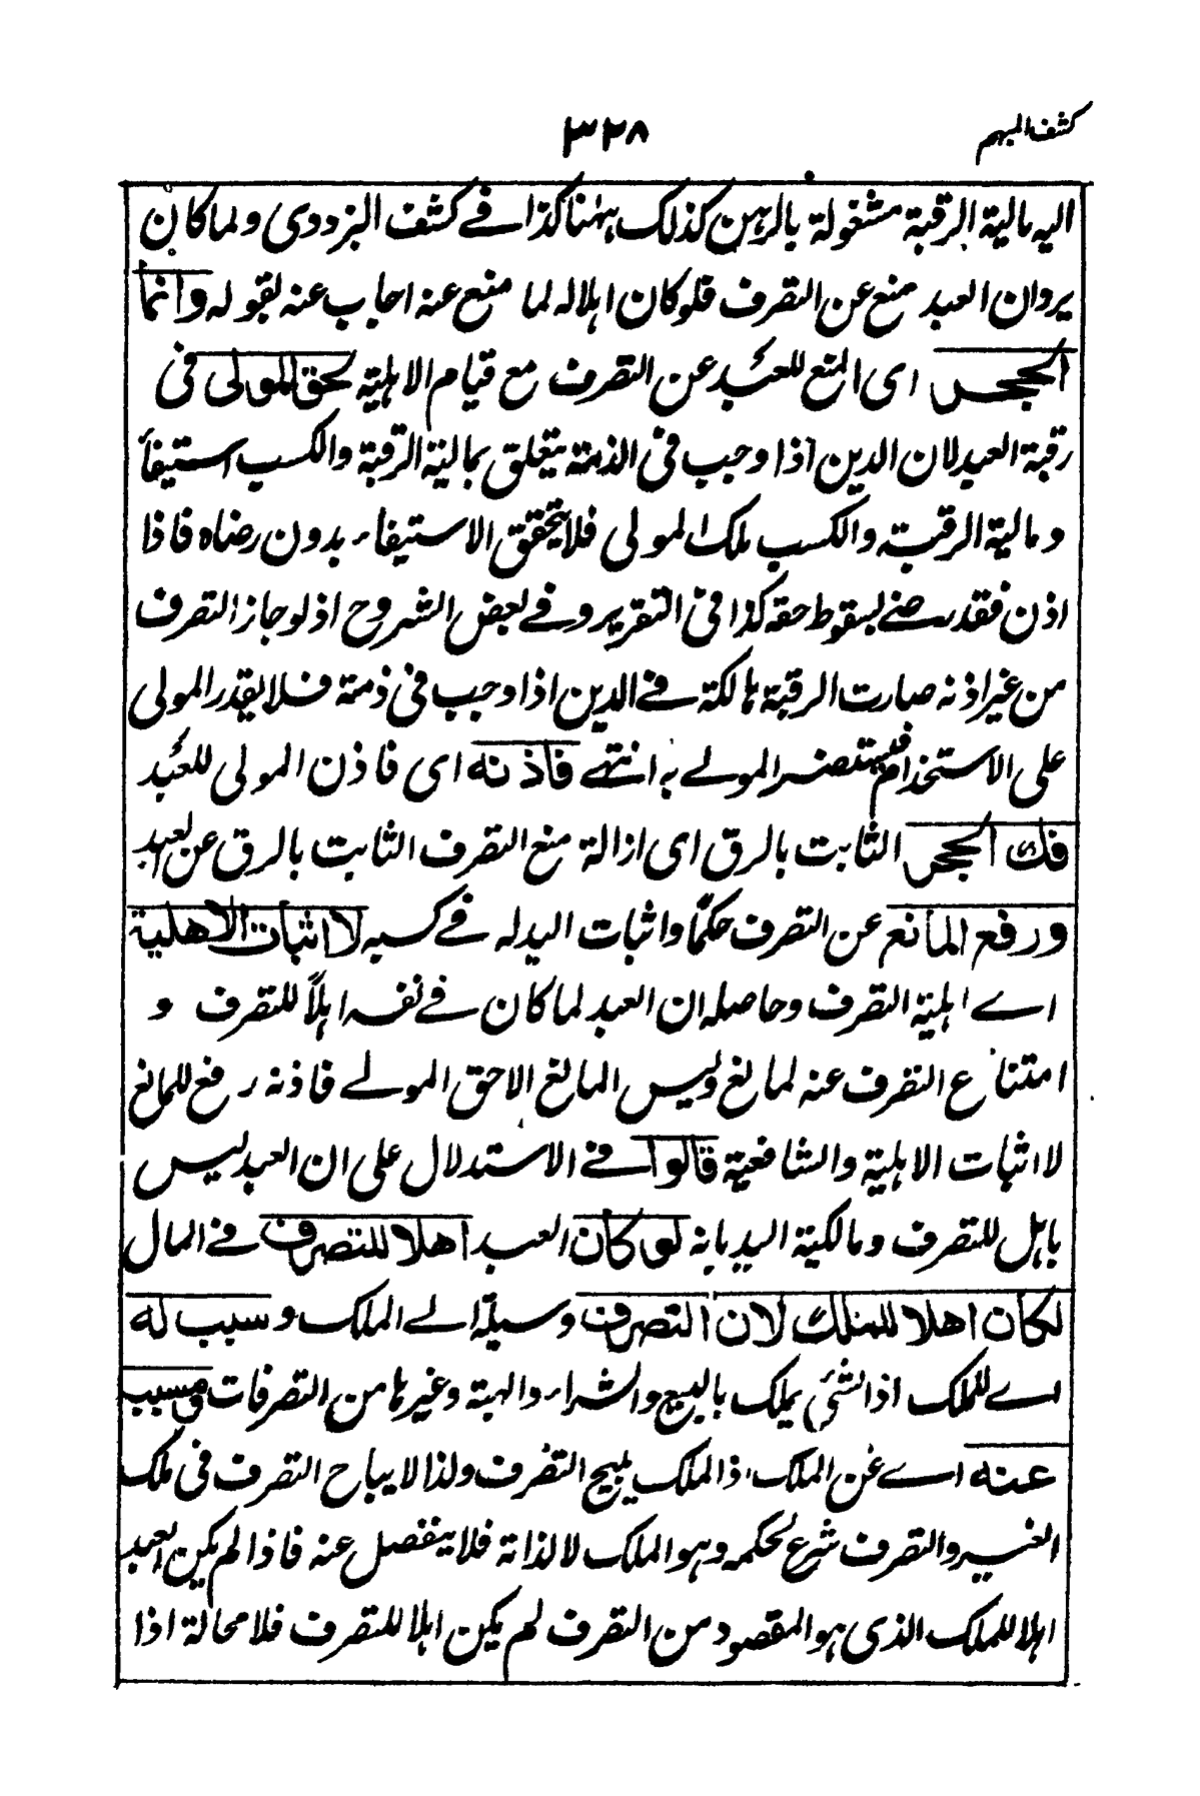 كشف المبهم
٣٢٨
اليه مالية الرقبة مشغولة بالرهن كذلك ههنا كذا في كشف البزدوى ولما كان
يردان العبد منع عن التصرف فلو كان اهلا له لما منع عنه اجاب عنه بقوله وانما
الحجر اى المنع للعبد عن التصرف مع قيام الاهلية لحق المولى فى
رقبة العبد لان الدين اذا وجب فى الذمة يتعلق بمالية الرقبة والكسب استيفاء
ومالية الرقبة والكسب ملك المولى فلا يتحقق الاستيفاء بدون رضاه فاذا
اذن فقد رضى بسقوط حقه كذا فى التقرير وفي بعض الشروح اذ لو جاز التصرف
من غير اذنه صارت الرقبة هالكة في الدين اذا وجب فى ذمة فلا يقدر المولى
على الاستخدام فيتضرر المولى به انتهى فاذنه اى فاذن المولى للعبد
فك الحجر الثابت بالرق اى ازالة منع التصرف الثابت بالرق عن العبد
ورفع المانع عن التصرف حكمًا واثبات اليد له في كسبه لا اثبات الاهلية
اى اهلية التصرف وحاصله ان العبد لما كان في نفسه اهلاً للتصرف و
امتناع التصرف عنه لمانع وليس المانع الا حق المولى فاذنه رفع للمانع
لا اثبات الاهلية والشافعية قالوا في الاستدلال على ان العبد ليس
باهل للتصرف ومالكية اليد بانه لو كان العبد اهلا للتصرف في المال
لكان اهلا للملك لان التصرف وسيلة الى الملك وسبب له
اى للملك اذ الشئ يملك بالبيع والشراء والهبة وغيرها من التصرفات ومسبب
عنه اى عن الملك اذ الملك يبيح التصرف ولذا لا يباح التصرف فى ملك
الغير والتصرف شرع لحكمه وهو الملك لا لذاته فلا ينفصل عنه فاذا لم يكن العبد
اهلا للملك الذى هو المقصود من التصرف لم يكن اهلا للتصرف فلا محالة اذا